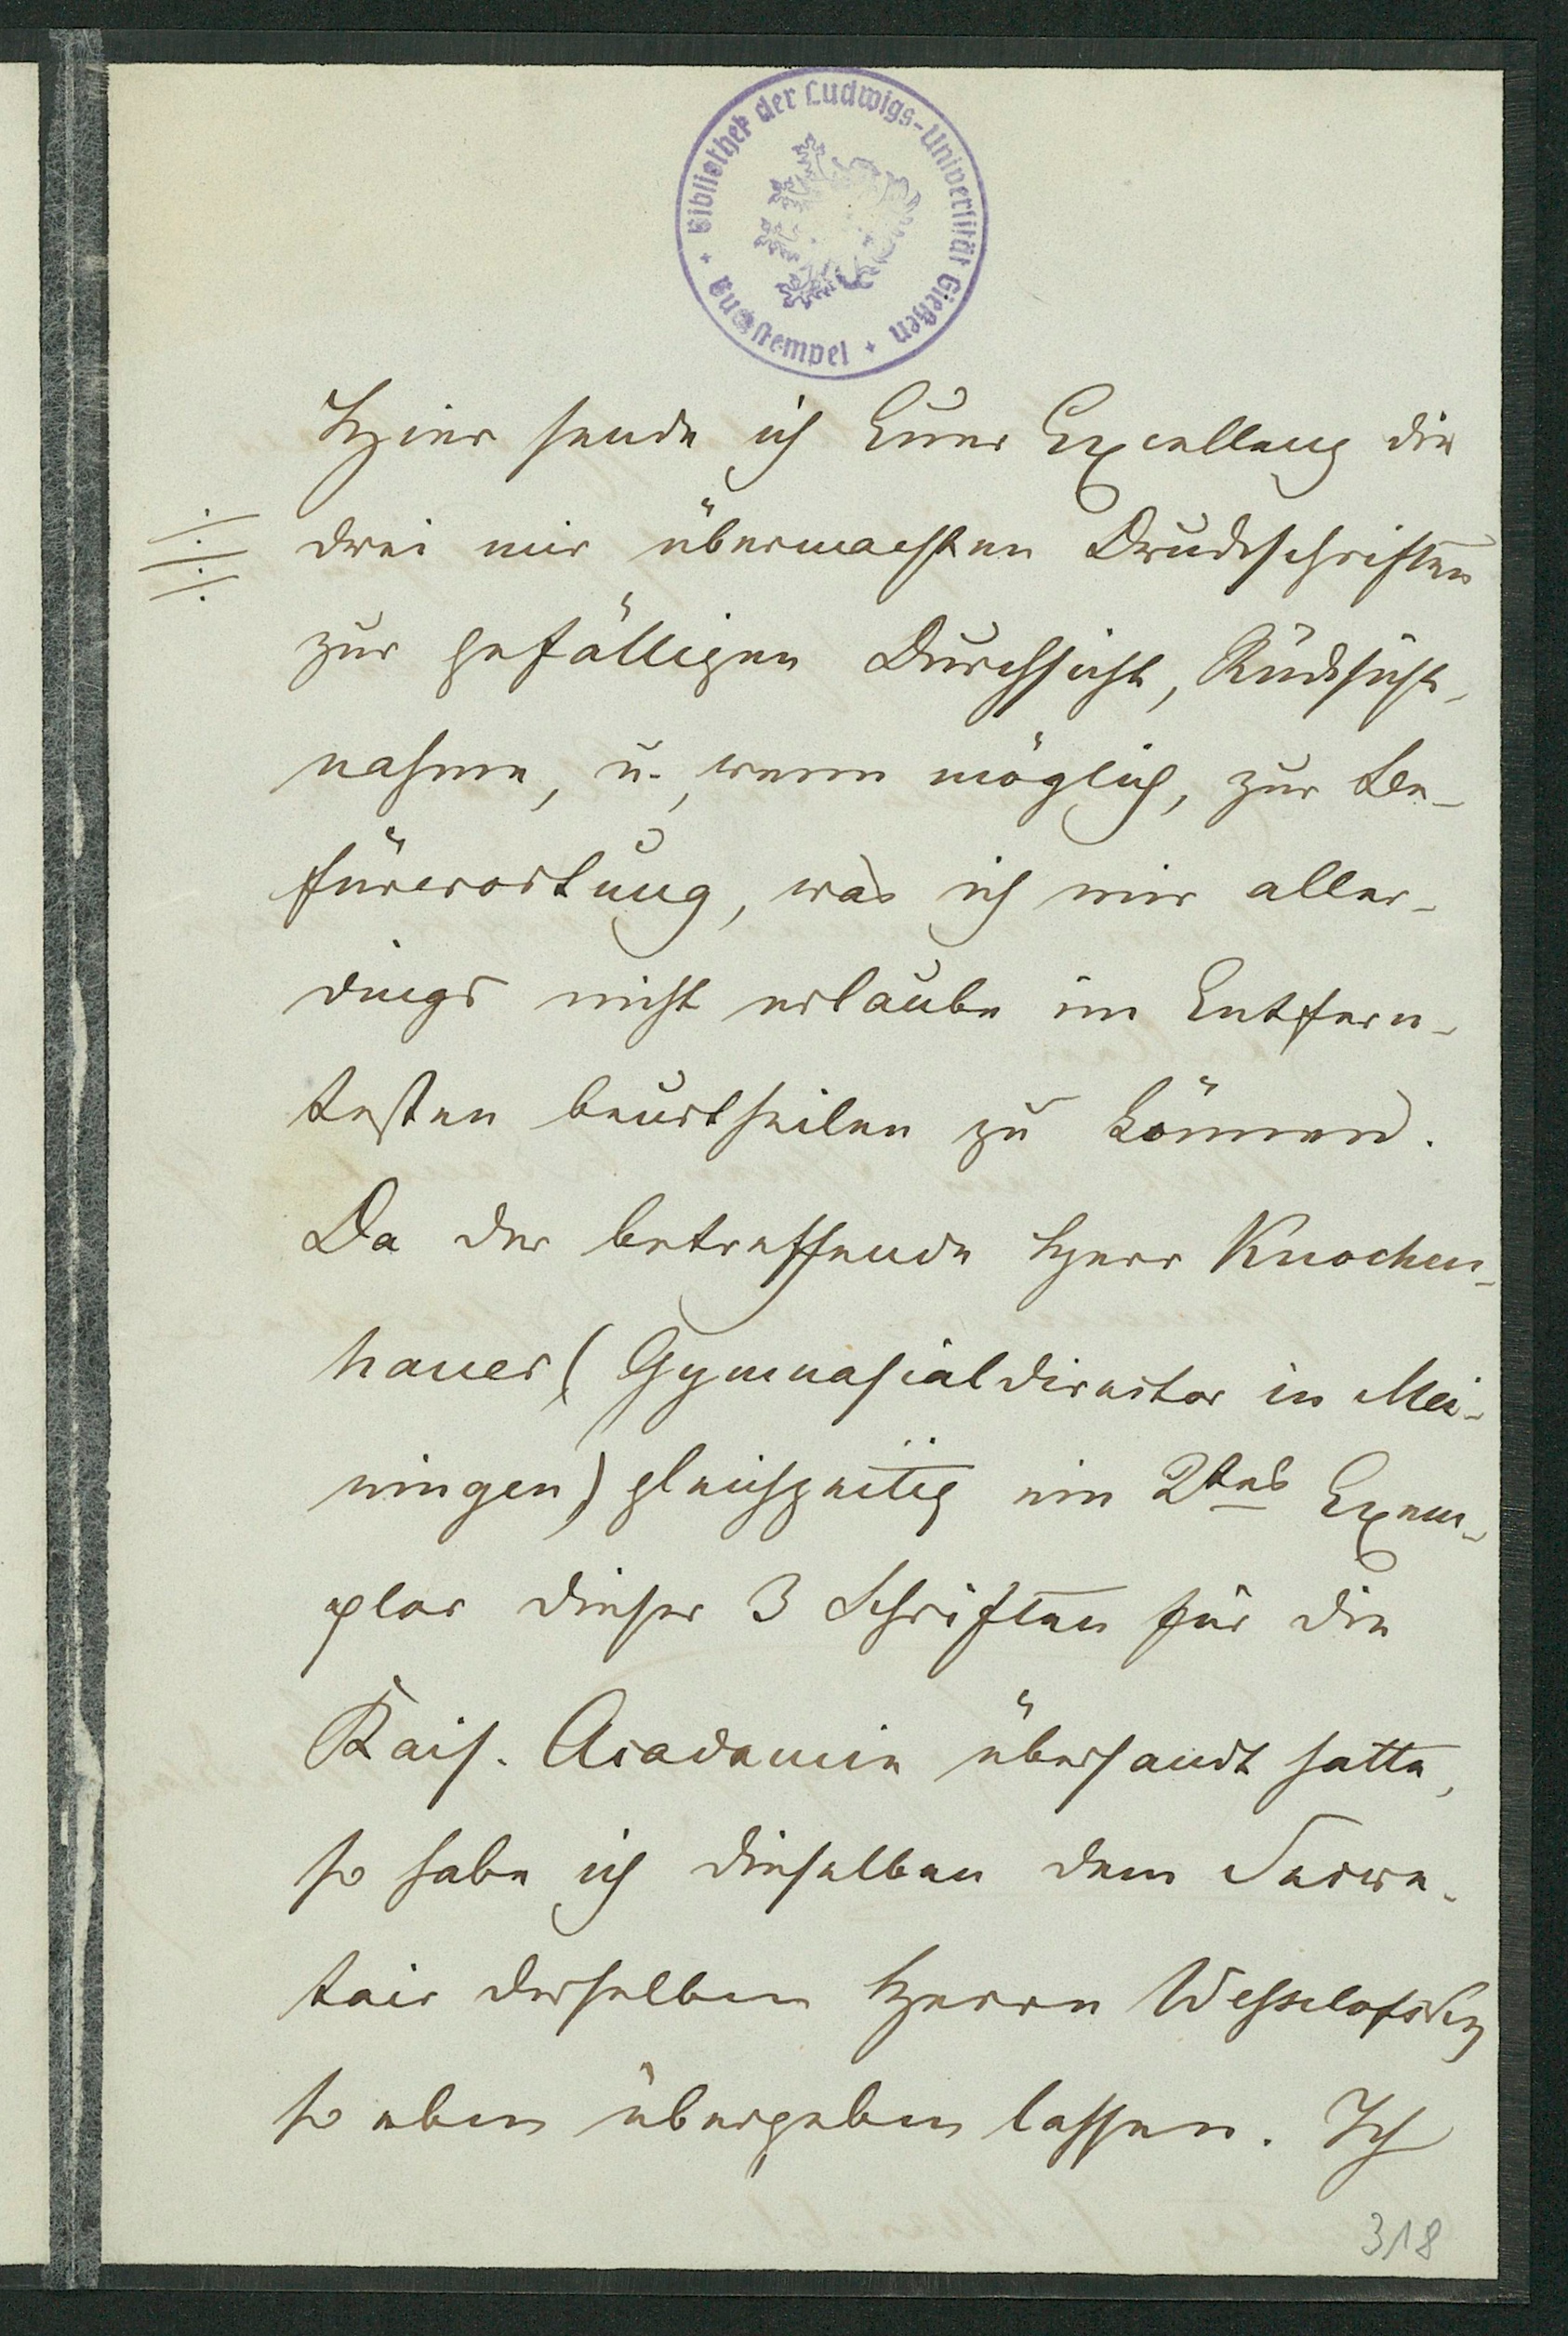 Bibliothek der Ludwigs-Universität Gießen
Buchstempel
Hier sende ich Euer Excellenz die
drei mir übermachten Druckschriften
zur gefälligen Durchsicht, Rücksicht-
nahme, u., wenn möglich, zur Be-
fürwortung, was ich mir aller-
dings nicht erlaube im Entfern-
testen beurtheilen zu können.
Da der betreffende Herr Knochen-
hauer (Gymnasialdirector in Mei-
ningen) gleichzeitig ein 2tes Exem-
plar dieser 3 Schriften für die
Kais. Academie übersandt hatte,
so habe ich dieselben dem Secre-
tair derselben Herrn Wesselofsky
so eben übergeben lassen. Ich
318